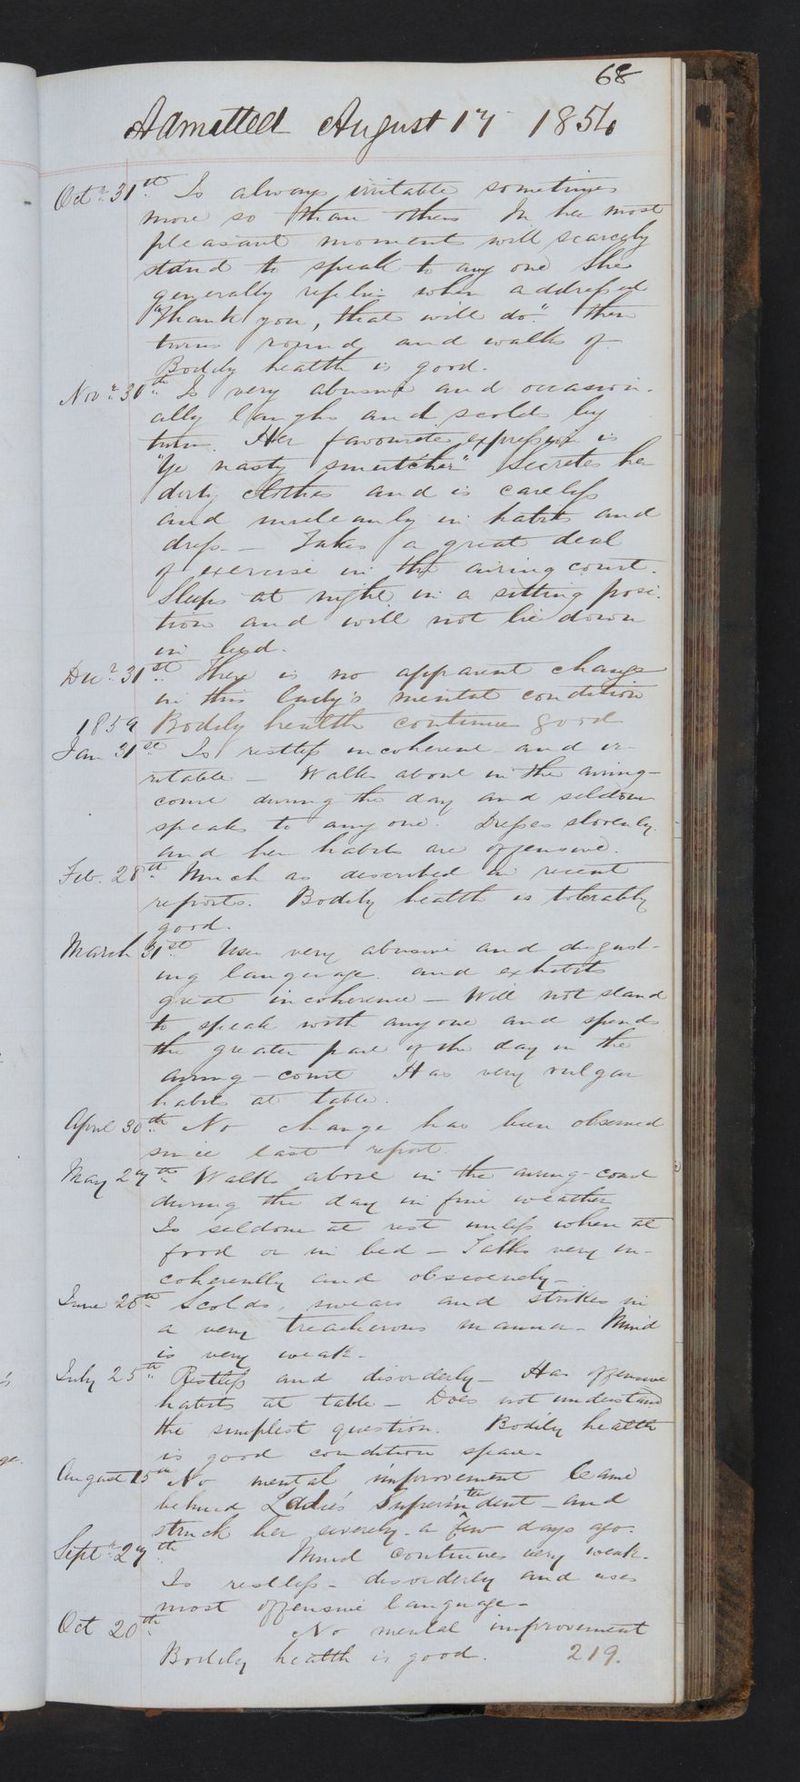 68
Admitted August 17 1854
Octr. 31st. Is always irritable sometimes
more so than others In her most
pleasant moments will scarcely
stand to speak to any one She
generally replies when addressed
"Thank you, that will do." then
turns round and walks off
Bodily health is good.
Novr. 30th. Is very abusive and occasion-
ally laughs and scolds by
turns. Her favourite expression is
"Ye nasty smutcher" Secretes her
dirty clothes and is careless
and uncleanly in habits and
dress. — Takes a great deal
of exercise in the airing court.
Sleeps at night in a sitting posi-
tion and will not lie down
in bed.
Decr. 31st. There is no apparent change
in this lady's mental condition
1859 Bodily health continues good
Jan 31st Is restless incoherent and ir-
ritable — Walks about in the airing-
court during the day and seldom
speaks to any one. Dresses slovenly
and her habits are offensive.
Feb. 28th. Much as described in recent
reports. Bodily health is tolerably
good.
March 31st. Uses very abusive and disgust-
ing language and exhibits
great incoherence — Will not stand
to speak with any one and spends
the greater part of the day in the
airing-court Has very vulgar
habits at table.
April 30th No change has been observed
since last report.
May 27th Walks about in the airing-court
during the day in fine weather
Is seldom at rest unless when at
food or in bed — Talks very in-
coherently and obscenely —
June 26th. Scolds, swears and strikes in
a very treacherous manner. Mind
is very weak.
July 25th. Restless and disorderly — Has offensive
habits at table — Does not understand
the simplest question. Bodily health
is good condition spare.
August 15th No mental improvement Came
behind Ladie's Superintendent — and
struck her severely. a few days ago.
Septr. 27th. Mind continues very weak.
Is restless — disorderly and uses
most offensive language —
Oct 20th. No mental improvement
Bodily health is good. 219.